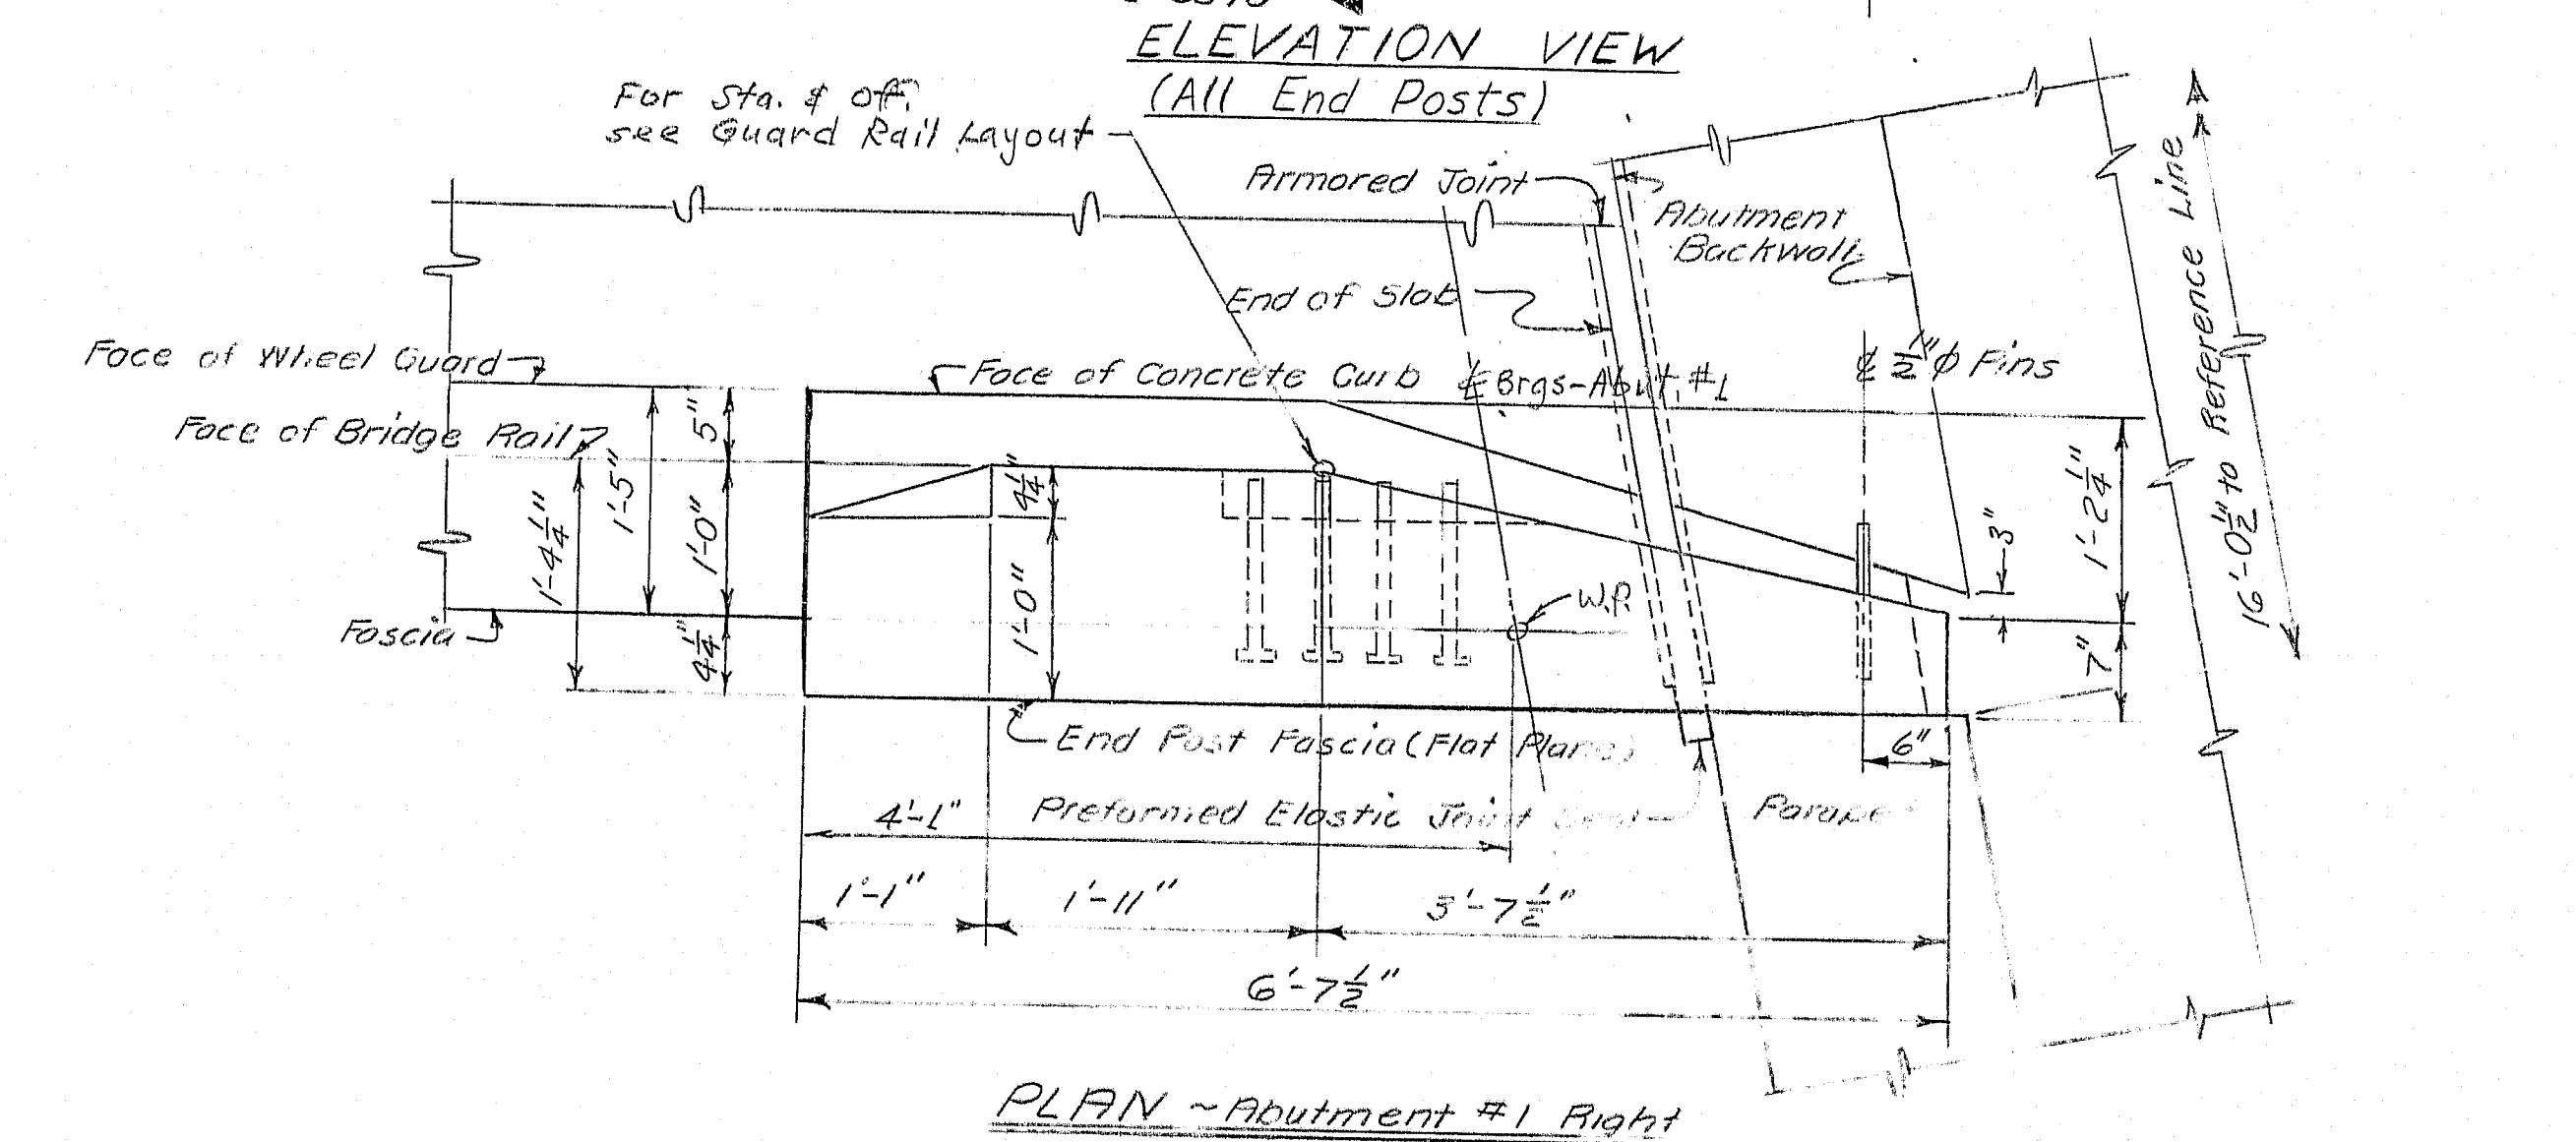 ELEVATION VIEW
(All End Posts)
For Sta. & Off.
see Guard Rail Layout
Armored Joint
Abutment
Backwall
End of Slab
Face of Wheel Guard
Face of Concrete Curb
℄ Brgs-Abut #1
℄ 1/2" φ Pins
Face of Bridge Rail
5"
1'-5"
1'-0"
1'-4 1/4"
4 1/4"
4 1/4"
1'-0"
Fascia
W.P.
3"
1'-2 1/4"
7"
16'-0 1/2" to Reference Line
End Post Fascia (Flat Plane)
6"
4'-1"
Preformed Elastic Joint
Parapet
1'-1"
1'-11"
3'-7 1/2"
6'-7 1/2"
PLAN ~ Abutment #1 Right